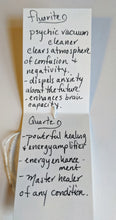 fluorite
psychic vacuum
cleaner
clears atmosphere
of confusion &
negativity.
- dispels anxiety
about the future!
enhances brain
capacity.
Quartz
- powerful healing
& energy amplifier
- energy enhance-
ment
- Master healer
of any condition.